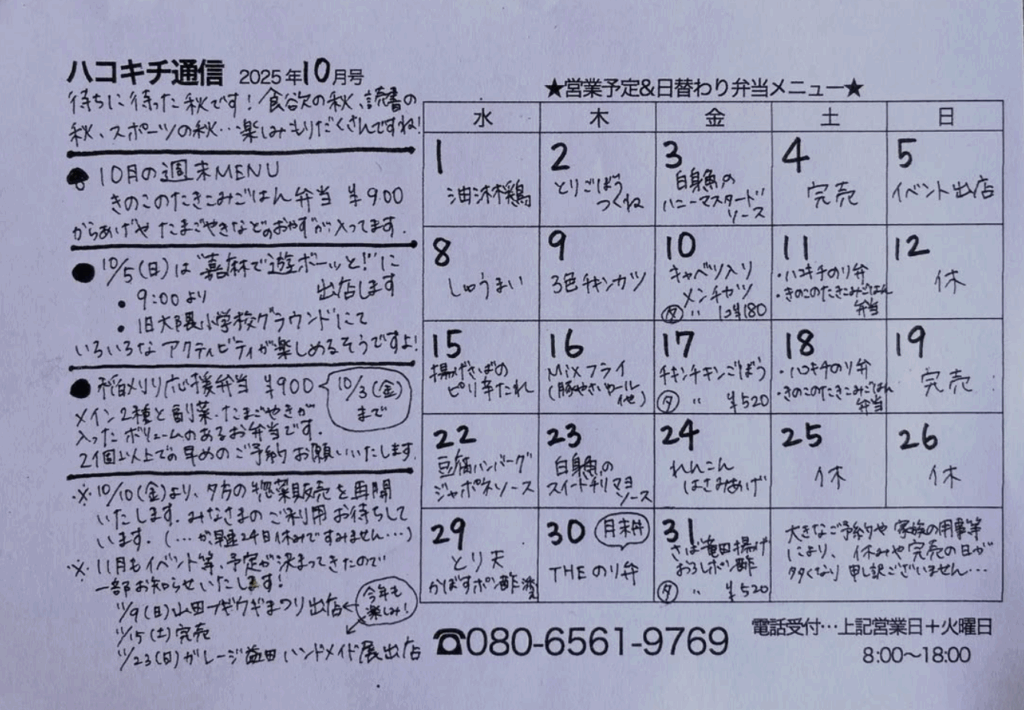 ハコキチ通信 2025年10月号
待ちに待った秋です！食欲の秋、読書の
秋、スポーツの秋…楽しみもりだくさんですね！
10月の週末MENU
きのこのたきこみごはん弁当 ¥900
からあげや たまごやきなどのおかずが入ってます.
● 10/5(日)は"嘉麻で遊ボーッと！"に
出店します
• 9:00より
• 旧大隈小学校グラウンドにて
いろいろな アクティビティが楽しめるそうですよ！
● 稲刈り応援弁当 ¥900
10/3(金)
まで
メイン2種と副菜・たまごやきが
入ったボリュームのあるお弁当です.
2個以上での早めのご予約お願いいたします.
※ 10/10(金)より、夕方の惣菜販売を再開
いたします. みなさまのご利用お待ちして
います. (…が早速24日休みですみません…)
※ 11月もイベント等、予定が決まってきたので
一部お知らせいたします！
11/9(日)山田ブギウギまつり出店
今年も
楽しみ！
11/15(土)完売
11/23(日)ガレージ益田ハンドメイド展出店
★営業予定&日替わり弁当メニュー★
水 木 金 土 日
1
油淋鶏
2
とりごぼう
つくね
3
白身魚の
ハニーマスタード
ソース
4
完売
5
イベント出店
8
しゅうまい
9
3色チキンカツ
10
キャベツ入り
メンチカツ
夕 〃 1コ¥180
11
・ハコキチのり弁
・きのこのたきこみごはん
弁当
12
休
15
揚げさばの
ピリ辛たれ
16
Mixフライ
(豚やさいロール
他)
17
チキンチキンごぼう
夕 〃 ¥520
18
・ハコキチのり弁
・きのこのたきこみごはん
弁当
19
完売
22
豆腐ハンバーグ
ジャポネソース
23
白身魚の
スイートチリマヨ
ソース
24
れんこん
はさみあげ
25
休
26
休
29
とり天
かぼすポン酢
30
月末弁
THEのり弁
31
さば竜田揚げ
おろしポン酢
夕 〃 ¥520
大きなご予約や家族の用事等
により、休みや完売の日が
多くなり申し訳ございません…
☎080-6561-9769
電話受付…上記営業日＋火曜日
8:00〜18:00